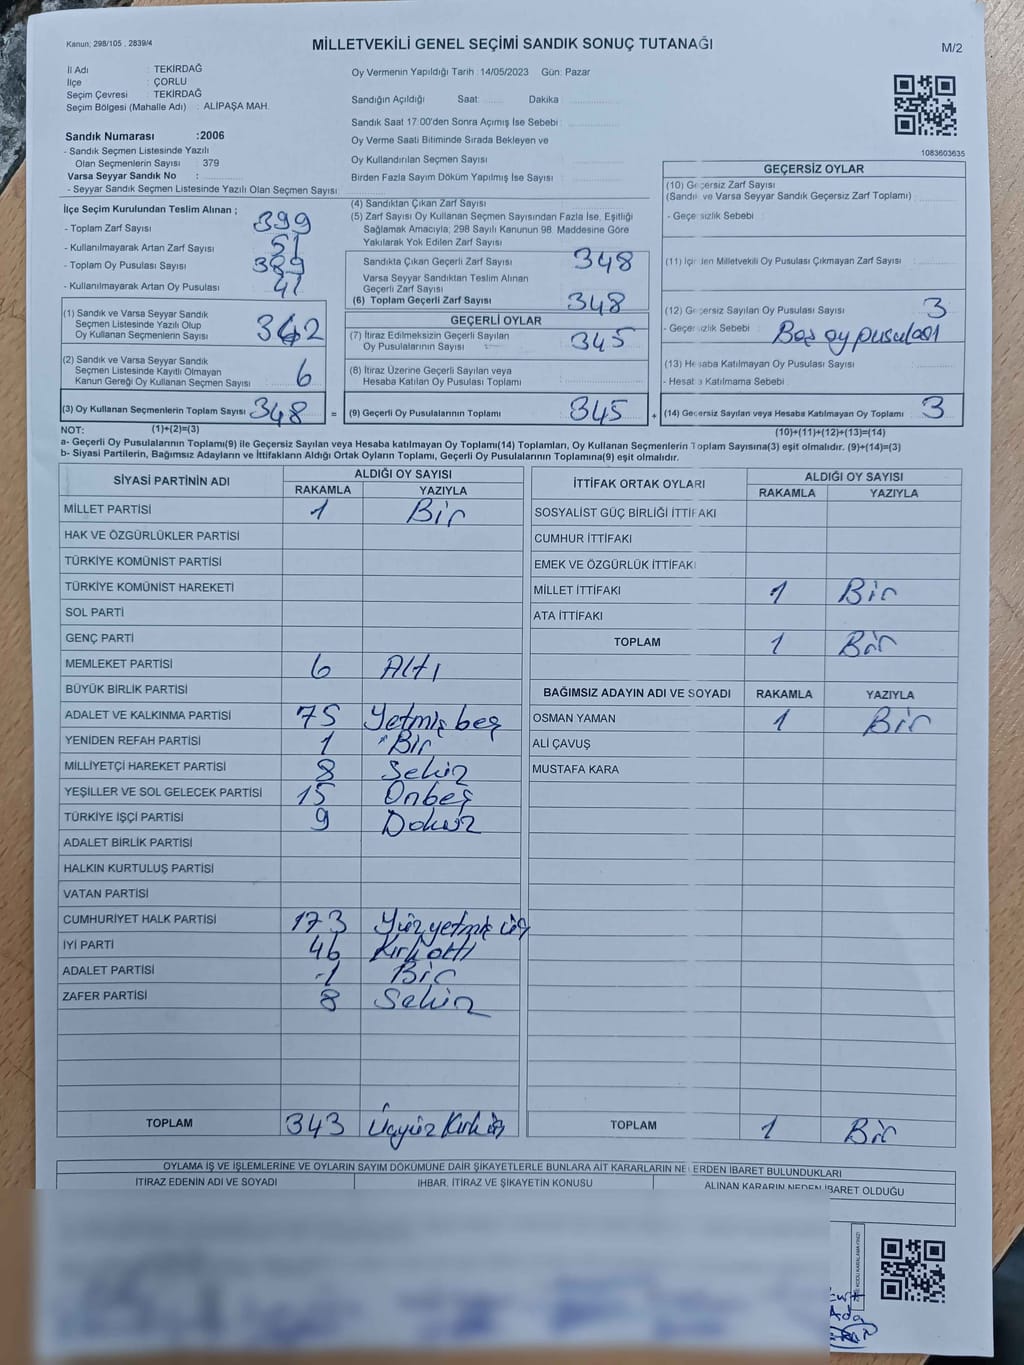 Kanun; 298/105 , 2839/4
MİLLETVEKİLİ GENEL SEÇİMİ SANDIK SONUÇ TUTANAĞI
M/2
İl Adı : TEKİRDAĞ
İlçe : ÇORLU
Seçim Çevresi : TEKİRDAĞ
Seçim Bölgesi (Mahalle Adı) : ALİPAŞA MAH.
Sandık Numarası :2006
- Sandık Seçmen Listesinde Yazılı
Olan Seçmenlerin Sayısı : 379
Varsa Seyyar Sandık No :
- Seyyar Sandık Seçmen Listesinde Yazılı Olan Seçmen Sayısı:
Oy Vermenin Yapıldığı Tarih :14/05/2023 Gün: Pazar
Sandığın Açıldığı Saat: Dakika :
Sandık Saat 17:00'den Sonra Açımış İse Sebebi :
Oy Verme Saati Bitiminde Sırada Bekleyen ve
Oy Kullandırılan Seçmen Sayısı :
Birden Fazla Sayım Döküm Yapılmış İse Sayısı :
1083603635
İlçe Seçim Kurulundan Teslim Alınan ;
- Toplam Zarf Sayısı : 399
- Kullanılmayarak Artan Zarf Sayısı : 51
- Toplam Oy Pusulası Sayısı : 389
- Kullanılmayarak Artan Oy Pusulası : 41
(1) Sandık ve Varsa Seyyar Sandık
Seçmen Listesinde Yazılı Olup
Oy Kullanan Seçmenlerin Sayısı : 342
(2) Sandık ve Varsa Seyyar Sandık
Seçmen Listesinde Kayıtlı Olmayan
Kanun Gereği Oy Kullanan Seçmen Sayısı : 6
(3) Oy Kullanan Seçmenlerin Toplam Sayısı : 348 =
(4) Sandıktan Çıkan Zarf Sayısı :
(5) Zarf Sayısı Oy Kullanan Seçmen Sayısından Fazla İse, Eşitliği
Sağlamak Amacıyla; 298 Sayılı Kanunun 98. Maddesine Göre
Yakılarak Yok Edilen Zarf Sayısı :
Sandıkta Çıkan Geçerli Zarf Sayısı : 348
Varsa Seyyar Sandıktan Teslim Alınan
Geçerli Zarf Sayısı :
(6) Toplam Geçerli Zarf Sayısı : 348
GEÇERLİ OYLAR
(7) İtiraz Edilmeksizin Geçerli Sayılan
Oy Pusulalarının Sayısı : 345
(8) İtiraz Üzerine Geçerli Sayılan veya
Hesaba Katılan Oy Pusulası Toplamı :
(9) Geçerli Oy Pusulalarının Toplamı : 345 +
GEÇERSİZ OYLAR
(10) Geçersiz Zarf Sayısı
(Sandık ve Varsa Seyyar Sandık Geçersiz Zarf Toplamı) :
- Geçersizlik Sebebi :
(11) İçinden Milletvekili Oy Pusulası Çıkmayan Zarf Sayısı :
(12) Geçersiz Sayılan Oy Pusulası Sayısı : 3
- Geçersizlik Sebebi : Boş oy pusulası
(13) Hesaba Katılmayan Oy Pusulası Sayısı :
- Hesaba Katılmama Sebebi :
(14) Geçersiz Sayılan veya Hesaba Katılmayan Oy Toplamı : 3
NOT: (1)+(2)=(3)
(10)+(11)+(12)+(13)=(14)
a- Geçerli Oy Pusulalarının Toplamı(9) ile Geçersiz Sayılan veya Hesaba katılmayan Oy Toplamı(14) Toplamları, Oy Kullanan Seçmenlerin Toplam Sayısına(3) eşit olmalıdır. (9)+(14)=(3)
b- Siyasi Partilerin, Bağımsız Adayların ve İttifakların Aldığı Ortak Oyların Toplamı, Geçerli Oy Pusulalarının Toplamına(9) eşit olmalıdır.
SİYASİ PARTİNİN ADI
ALDIĞI OY SAYISI
RAKAMLA YAZIYLA
MİLLET PARTİSİ 1 Bir
HAK VE ÖZGÜRLÜKLER PARTİSİ
TÜRKİYE KOMÜNİST PARTİSİ
TÜRKİYE KOMÜNİST HAREKETİ
SOL PARTİ
GENÇ PARTİ
MEMLEKET PARTİSİ 6 Altı
BÜYÜK BİRLİK PARTİSİ
ADALET VE KALKINMA PARTİSİ 75 Yetmiş beş
YENİDEN REFAH PARTİSİ 1 Bir
MİLLİYETÇİ HAREKET PARTİSİ 8 Sekiz
YEŞİLLER VE SOL GELECEK PARTİSİ 15 Onbeş
TÜRKİYE İŞÇİ PARTİSİ 9 Dokuz
ADALET BİRLİK PARTİSİ
HALKIN KURTULUŞ PARTİSİ
VATAN PARTİSİ
CUMHURİYET HALK PARTİSİ 173 Yüzyetmiş üç
İYİ PARTİ 46 Kırkaltı
ADALET PARTİSİ 1 Bir
ZAFER PARTİSİ 8 Sekiz
TOPLAM 343 Üçyüz Kırk üç
İTTİFAK ORTAK OYLARI
ALDIĞI OY SAYISI
RAKAMLA YAZIYLA
SOSYALİST GÜÇ BİRLİĞİ İTTİFAKI
CUMHUR İTTİFAKI
EMEK VE ÖZGÜRLÜK İTTİFAKI
MİLLET İTTİFAKI 1 Bir
ATA İTTİFAKI
TOPLAM 1 Bir
BAĞIMSIZ ADAYIN ADI VE SOYADI RAKAMLA YAZIYLA
OSMAN YAMAN 1 Bir
ALİ ÇAVUŞ
MUSTAFA KARA
TOPLAM 1 Bir
OYLAMA İŞ VE İŞLEMLERİNE VE OYLARIN SAYIM DÖKÜMÜNE DAİR ŞİKAYETLERLE BUNLARA AİT KARARLARIN NELERDEN İBARET BULUNDUKLARI
İTİRAZ EDENİN ADI VE SOYADI İHBAR, İTİRAZ VE ŞİKAYETİN KONUSU ALINAN KARARIN NEDEN İBARET OLDUĞU